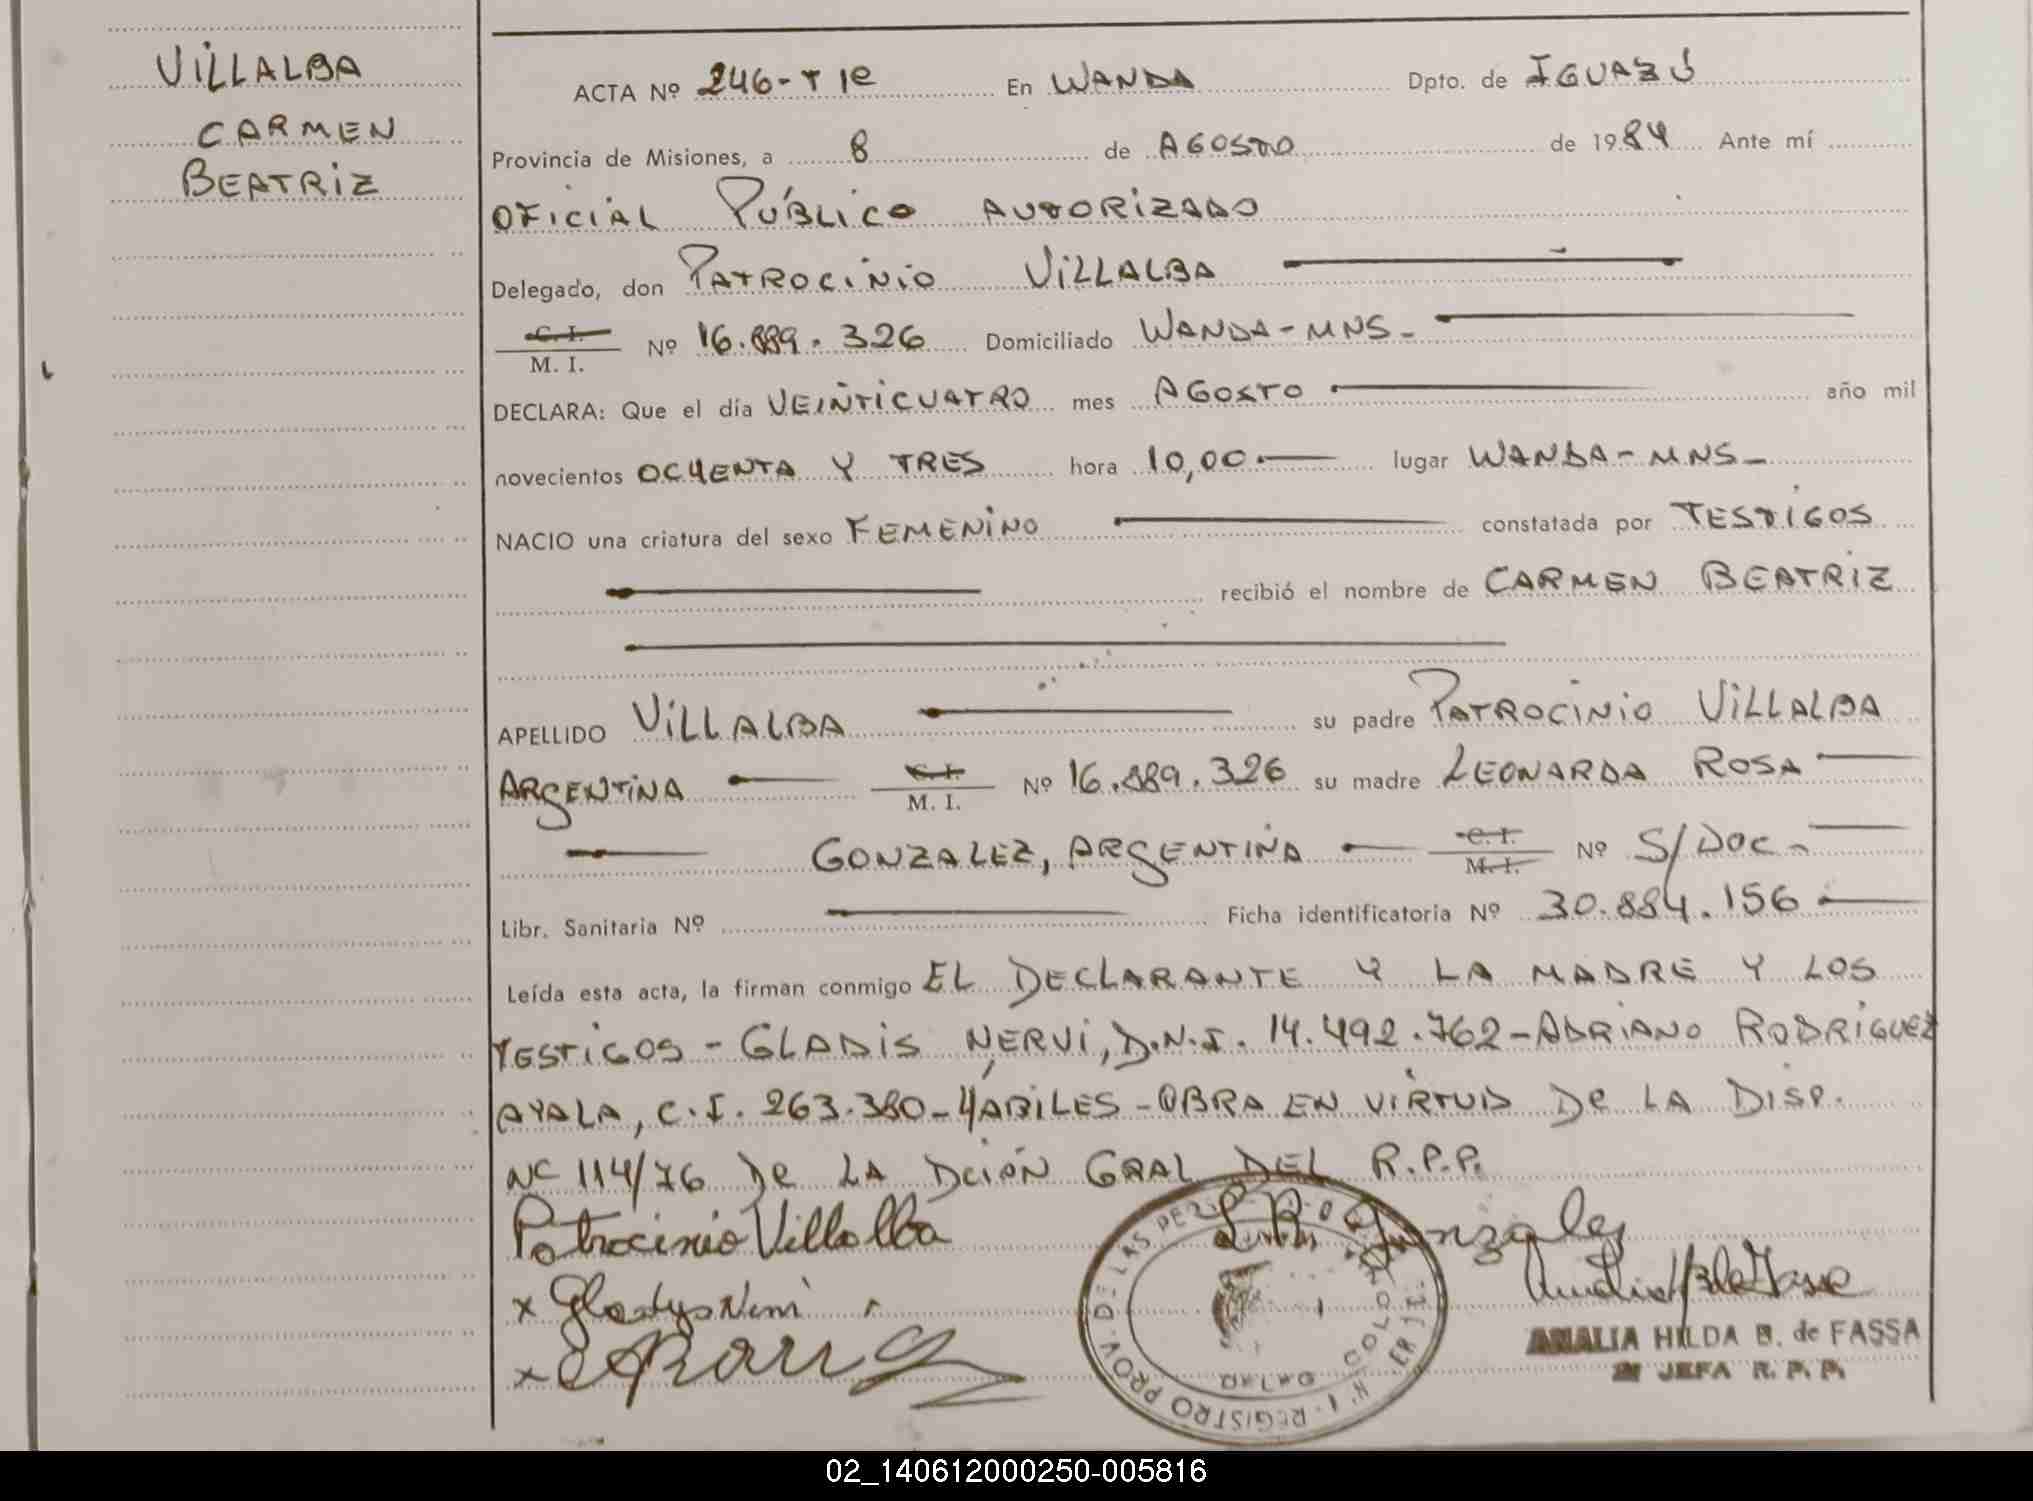 VILLALBA
CARMEN
BEATRIZ
ACTA Nº 246-T Ie En WANDA Dpto. de IGUAZÚ
Provincia de Misiones, a 8 de AGOSTO de 1984 Ante mí
OFICIAL PÚBLICO AUTORIZADO
Delegado, don PATROCINIO VILLALBA
C. I.
M. I. Nº 16.889.326 Domiciliado WANDA-MNS-
DECLARA: Que el día VEINTICUATRO mes AGOSTO año mil
novecientos OCHENTA Y TRES hora 10,00 lugar WANDA-MNS-
NACIO una criatura del sexo FEMENINO constatada por TESTIGOS
recibió el nombre de CARMEN BEATRIZ
APELLIDO VILLALBA su padre PATROCINIO VILLALBA
ARGENTINA C. I. M. I. Nº 16.889.326 su madre LEONARDA ROSA
GONZALEZ, ARGENTINA C. I. M. I. Nº S/DOC-
Libr. Sanitaria Nº Ficha identificatoria Nº 30.884.156
Leída esta acta, la firman conmigo EL DECLARANTE Y LA MADRE Y LOS
TESTIGOS - GLADIS NERVI, D.N.I. 14.492.762-ADRIANO RODRIGUEZ
AYALA, C.I. 263.380-HÁBILES-OBRA EN VIRTUD De LA DISP.
Nº 114/76 De LA DCIÓN GRAL DEL R.P.P.
Patrocinio Villalba L. R. Gonzales
x Gladys Nervi
x
REGISTRO PROV. DE LAS PER
WANDA
AMALIA HILDA B. de FASSA
JEFA R. P. P.
02_140612000250-005816